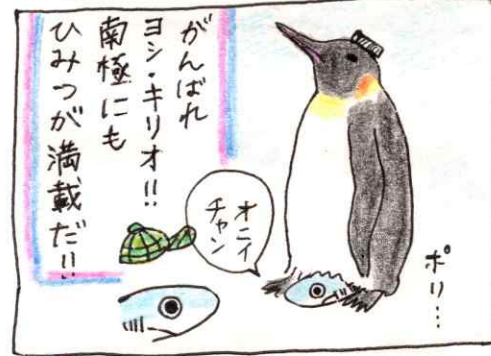 がんばれ
ヨシ・キリオ!!
南極にも
ひみつが満載だ!!
オニイ
チャン
ポリ…